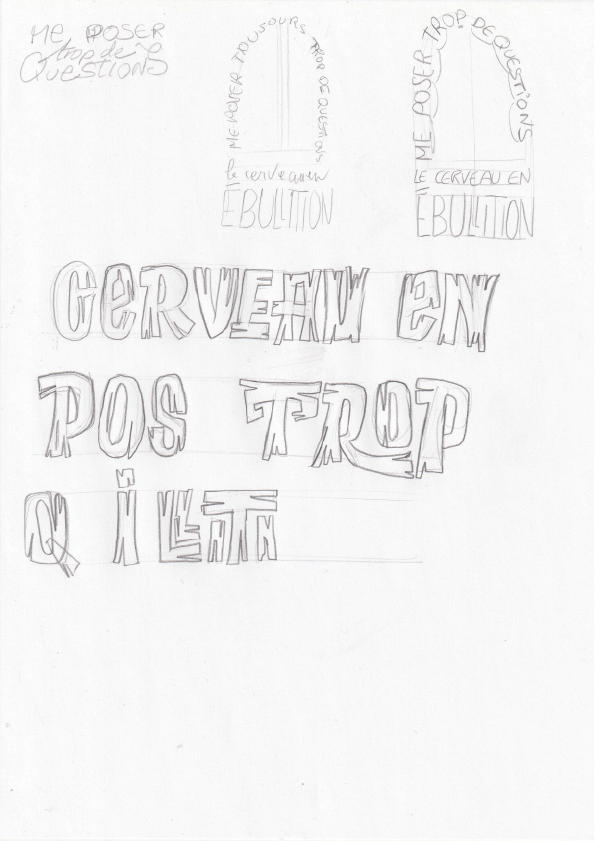 ME POSER
trop de
QUESTIONS
ME POSER TOUJOURS TROP DE QUESTIONS
le cerveau en
ÉBULLITION
ME POSER TROP DE QUESTIONS
LE CERVEAU EN
ÉBULLITION
CERVEAU EN
POS TROP
Q i